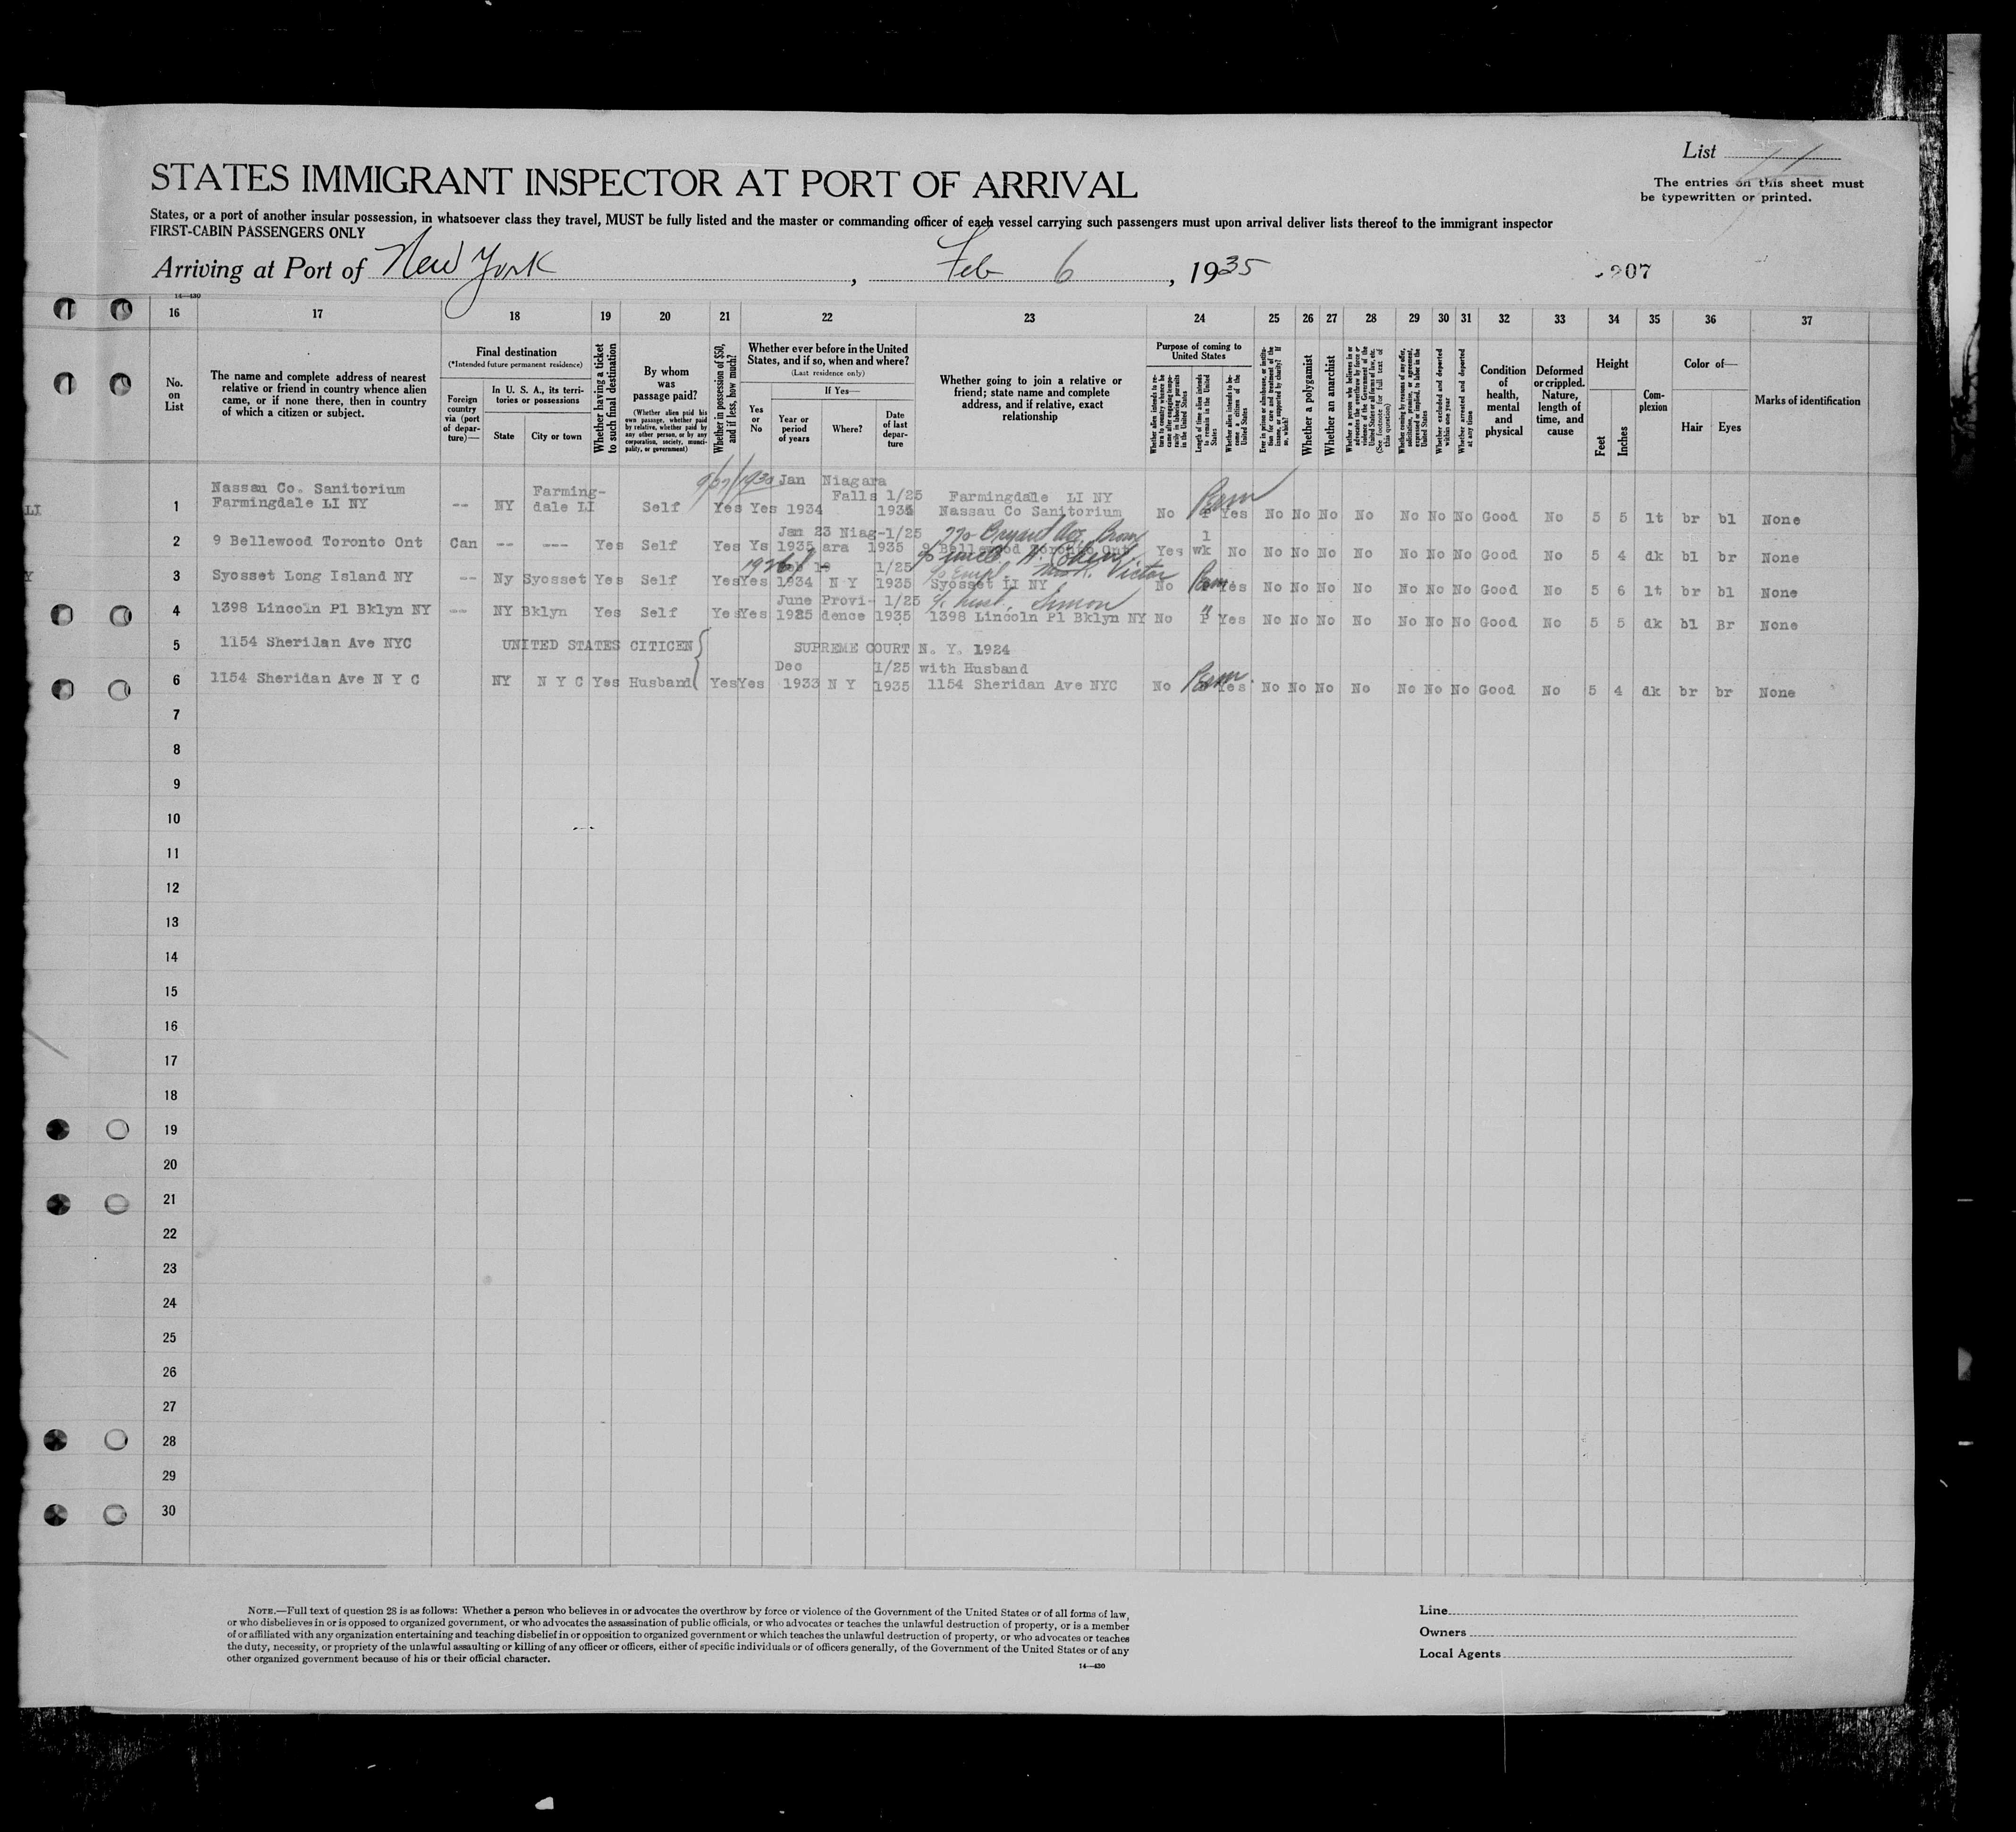 List
STATES IMMIGRANT INSPECTOR AT PORT OF ARRIVAL
The entries on this sheet must
be typewritten or printed.
States, or a port of another insular possession, in whatsoever class they travel, MUST be fully listed and the master or commanding officer of each vessel carrying such passengers must upon arrival deliver lists thereof to the immigrant inspector
FIRST-CABIN PASSENGERS ONLY
Arriving at Port of New York, Feb 6, 1935
207
14—430
16 17 18 19 20 21 22 23 24 25 26 27 28 29 30 31 32 33 34 35 36 37
No. on List
The name and complete address of nearest relative or friend in country whence alien came, or if none there, then in country of which a citizen or subject.
Final destination
(*Intended future permanent residence)
Foreign country via (port of departure)—
In U. S. A., its territories or possessions
State
City or town
Whether having a ticket to such final destination
By whom was passage paid?
(Whether alien paid his own passage, whether paid by relative, whether paid by any other person, or by any corporation, society, municipality, or government)
Whether in possession of $50, and if less, how much?
Whether ever before in the United States, and if so, when and where?
(Last residence only)
Yes or No
If Yes—
Year or period of years
Where?
Date of last departure
Whether going to join a relative or friend; state name and complete address, and if relative, exact relationship
Purpose of coming to United States
Whether alien intends to return to country whence he came after engaging temporarily in laboring pursuits in the United States
Length of time alien intends to remain in the United States
Whether alien intends to become a citizen of the United States
Ever in prison or almshouse, or institution for care and treatment of the insane, or supported by charity? If so, which?
Whether a polygamist
Whether an anarchist
Whether a person who believes in or advocates the overthrow by force or violence of the Government of the United States or all forms of law, etc. (See footnote for full text of this question)
Whether coming by reason of any offer, solicitation, promise, or agreement, expressed or implied, to labor in the United States
Whether excluded and deported within one year
Whether arrested and deported at any time
Condition of health, mental and physical
Deformed or crippled. Nature, length of time, and cause
Height
Feet
Inches
Complexion
Color of—
Hair
Eyes
Marks of identification
LI 1 Nassau Co. Sanitorium Farmingdale LI NY -- NY Farming-dale LI Self Yes Yes Jan 1934 Niagara Falls 1/25 1935 Farmingdale LI NY Nassau Co Sanitorium No Perm Yes No No No No No No No Good No 5 5 lt br bl None
2 9 Bellewood Toronto Ont Can -- --- Yes Self Yes Ys Jan 23 1935 Niag-ara 1/25 1935 770 Bryant Ave. Bronx 9 Bellewood Toronto Ont Yes 1 wk No No No No No No No No Good No 5 4 dk bl br None
Y 3 Syosset Long Island NY -- Ny Syosset Yes Self Yes Yes 1934 N Y 1/25 1935 Victor Syosset LI NY No Perm Yes No No No No No No No Good No 5 6 lt br bl None
4 1398 Lincoln Pl Bklyn NY -- NY Bklyn Yes Self Yes Yes June 1925 Provi-dence 1/25 1935 Simon 1398 Lincoln Pl Bklyn NY No " P Yes No No No No No No No Good No 5 5 dk bl Br None
5 1154 Sherilan Ave NYC UNITED STATES CITICEN SUPREME COURT N. Y. 1924
6 1154 Sheridan Ave N Y C NY N Y C Yes Husband Yes Yes Dec 1933 N Y 1/25 1935 with Husband 1154 Sheridan Ave NYC No Perm. Yes No No No No No No No Good No 5 4 dk br br None
7
8
9
10
11
12
13
14
15
16
17
18
19
20
21
22
23
24
25
26
27
28
29
30
NOTE.—Full text of question 28 is as follows: Whether a person who believes in or advocates the overthrow by force or violence of the Government of the United States or of all forms of law,
or who disbelieves in or is opposed to organized government, or who advocates the assassination of public officials, or who advocates or teaches the unlawful destruction of property, or is a member
of or affiliated with any organization entertaining and teaching disbelief in or opposition to organized government or which teaches the unlawful destruction of property, or who advocates or teaches
the duty, necessity, or propriety of the unlawful assaulting or killing of any officer or officers, either of specific individuals or of officers generally, of the Government of the United States or of any
other organized government because of his or their official character.
14—430
Line
Owners
Local Agents